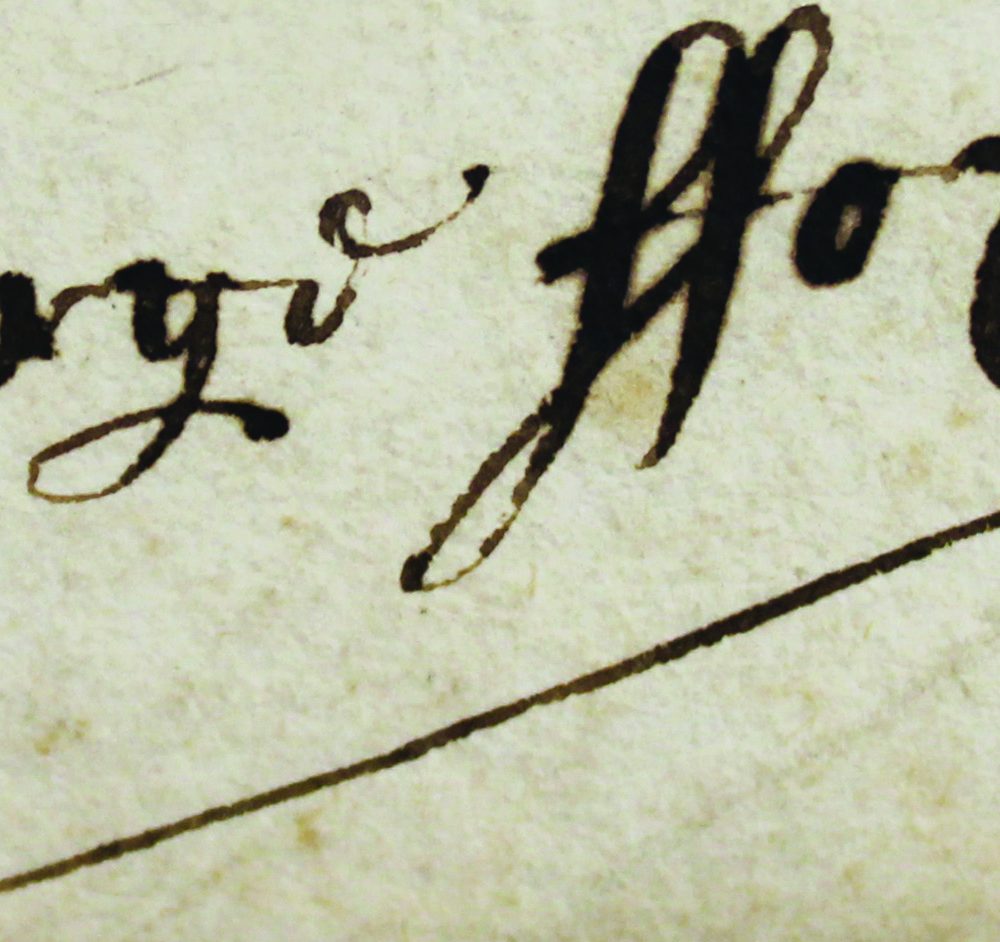 orge ffo